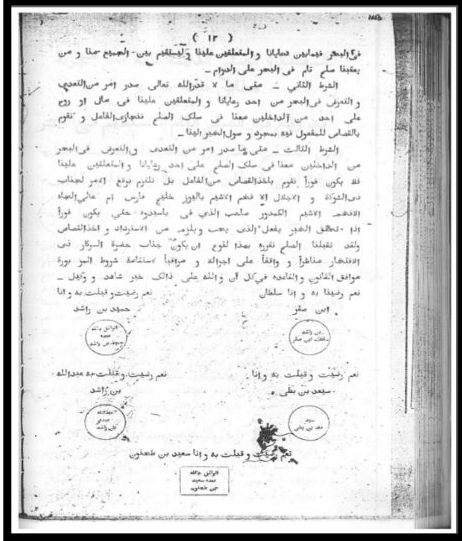 ( ١٣ )
في البحر فيمابين رعايانا و المتعلقين علينا و ليستقيم بين الجميع منا و من
يعقبنا صلح تام في البحر على الدوام ــ
الشرط الثاني ــ متى ما لا قدرالله تعالى صدر امر من التعدي
و التعرف في البحر من احد رعايانا و المتعلقين علينا في مال او روح
على احد من الداخلين معنا في سلك الصلح فنجازي الفاعل و نقوم
بالقصاص للمفعول فيه بمجرد وصول الخبر الينا ــ
الشرط الثالث ــ متى ما صدر امر من التعدي و التعرف في البحر
من الداخلين معنا في سلك الصلح على احد رعايانا و المتعلقين علينا
فلا يكون فوراً نقوم باخذالقصاص من الفاعل بل نلتزم برفع الامر لجناب
ذي الشوكة و الاجلال الافخم الاشيم باليوز خليج فارس ام عالي الجاه
الافخم الاشيم الكمدور صاحب الذي في باسيدوه حتى يكون فوراً
اذا تحقق الخبر يفعل الذي يجب ويلزم من الاسترداد و اخذالقصاص
ولقد تقبلنا الصلح نقرره بهذا لنوع ان يكون جناب حضرة السركار ذي
الافتخار مناظراً و واقفاً على اجرائه و مراقباً استقامة شروط المزبورة
موافق القانون و القاعده في كل آن و الله على ذالك خير شاهد و وكيل ــ
نعم رضينا به و انا سلطان
ابن صقر
نعم رضيت و قبلت به و انا
حميد بن راشد
نعم رضيت و قبلت به و انا
سعيد بن بطي
نعم رضيت و قبلت به عبدالله
بن راشد
نعم رضيت و قبلت به و انا سعيد بن طحنون
الواثق بالله
عبده سعيد
بن طحنون